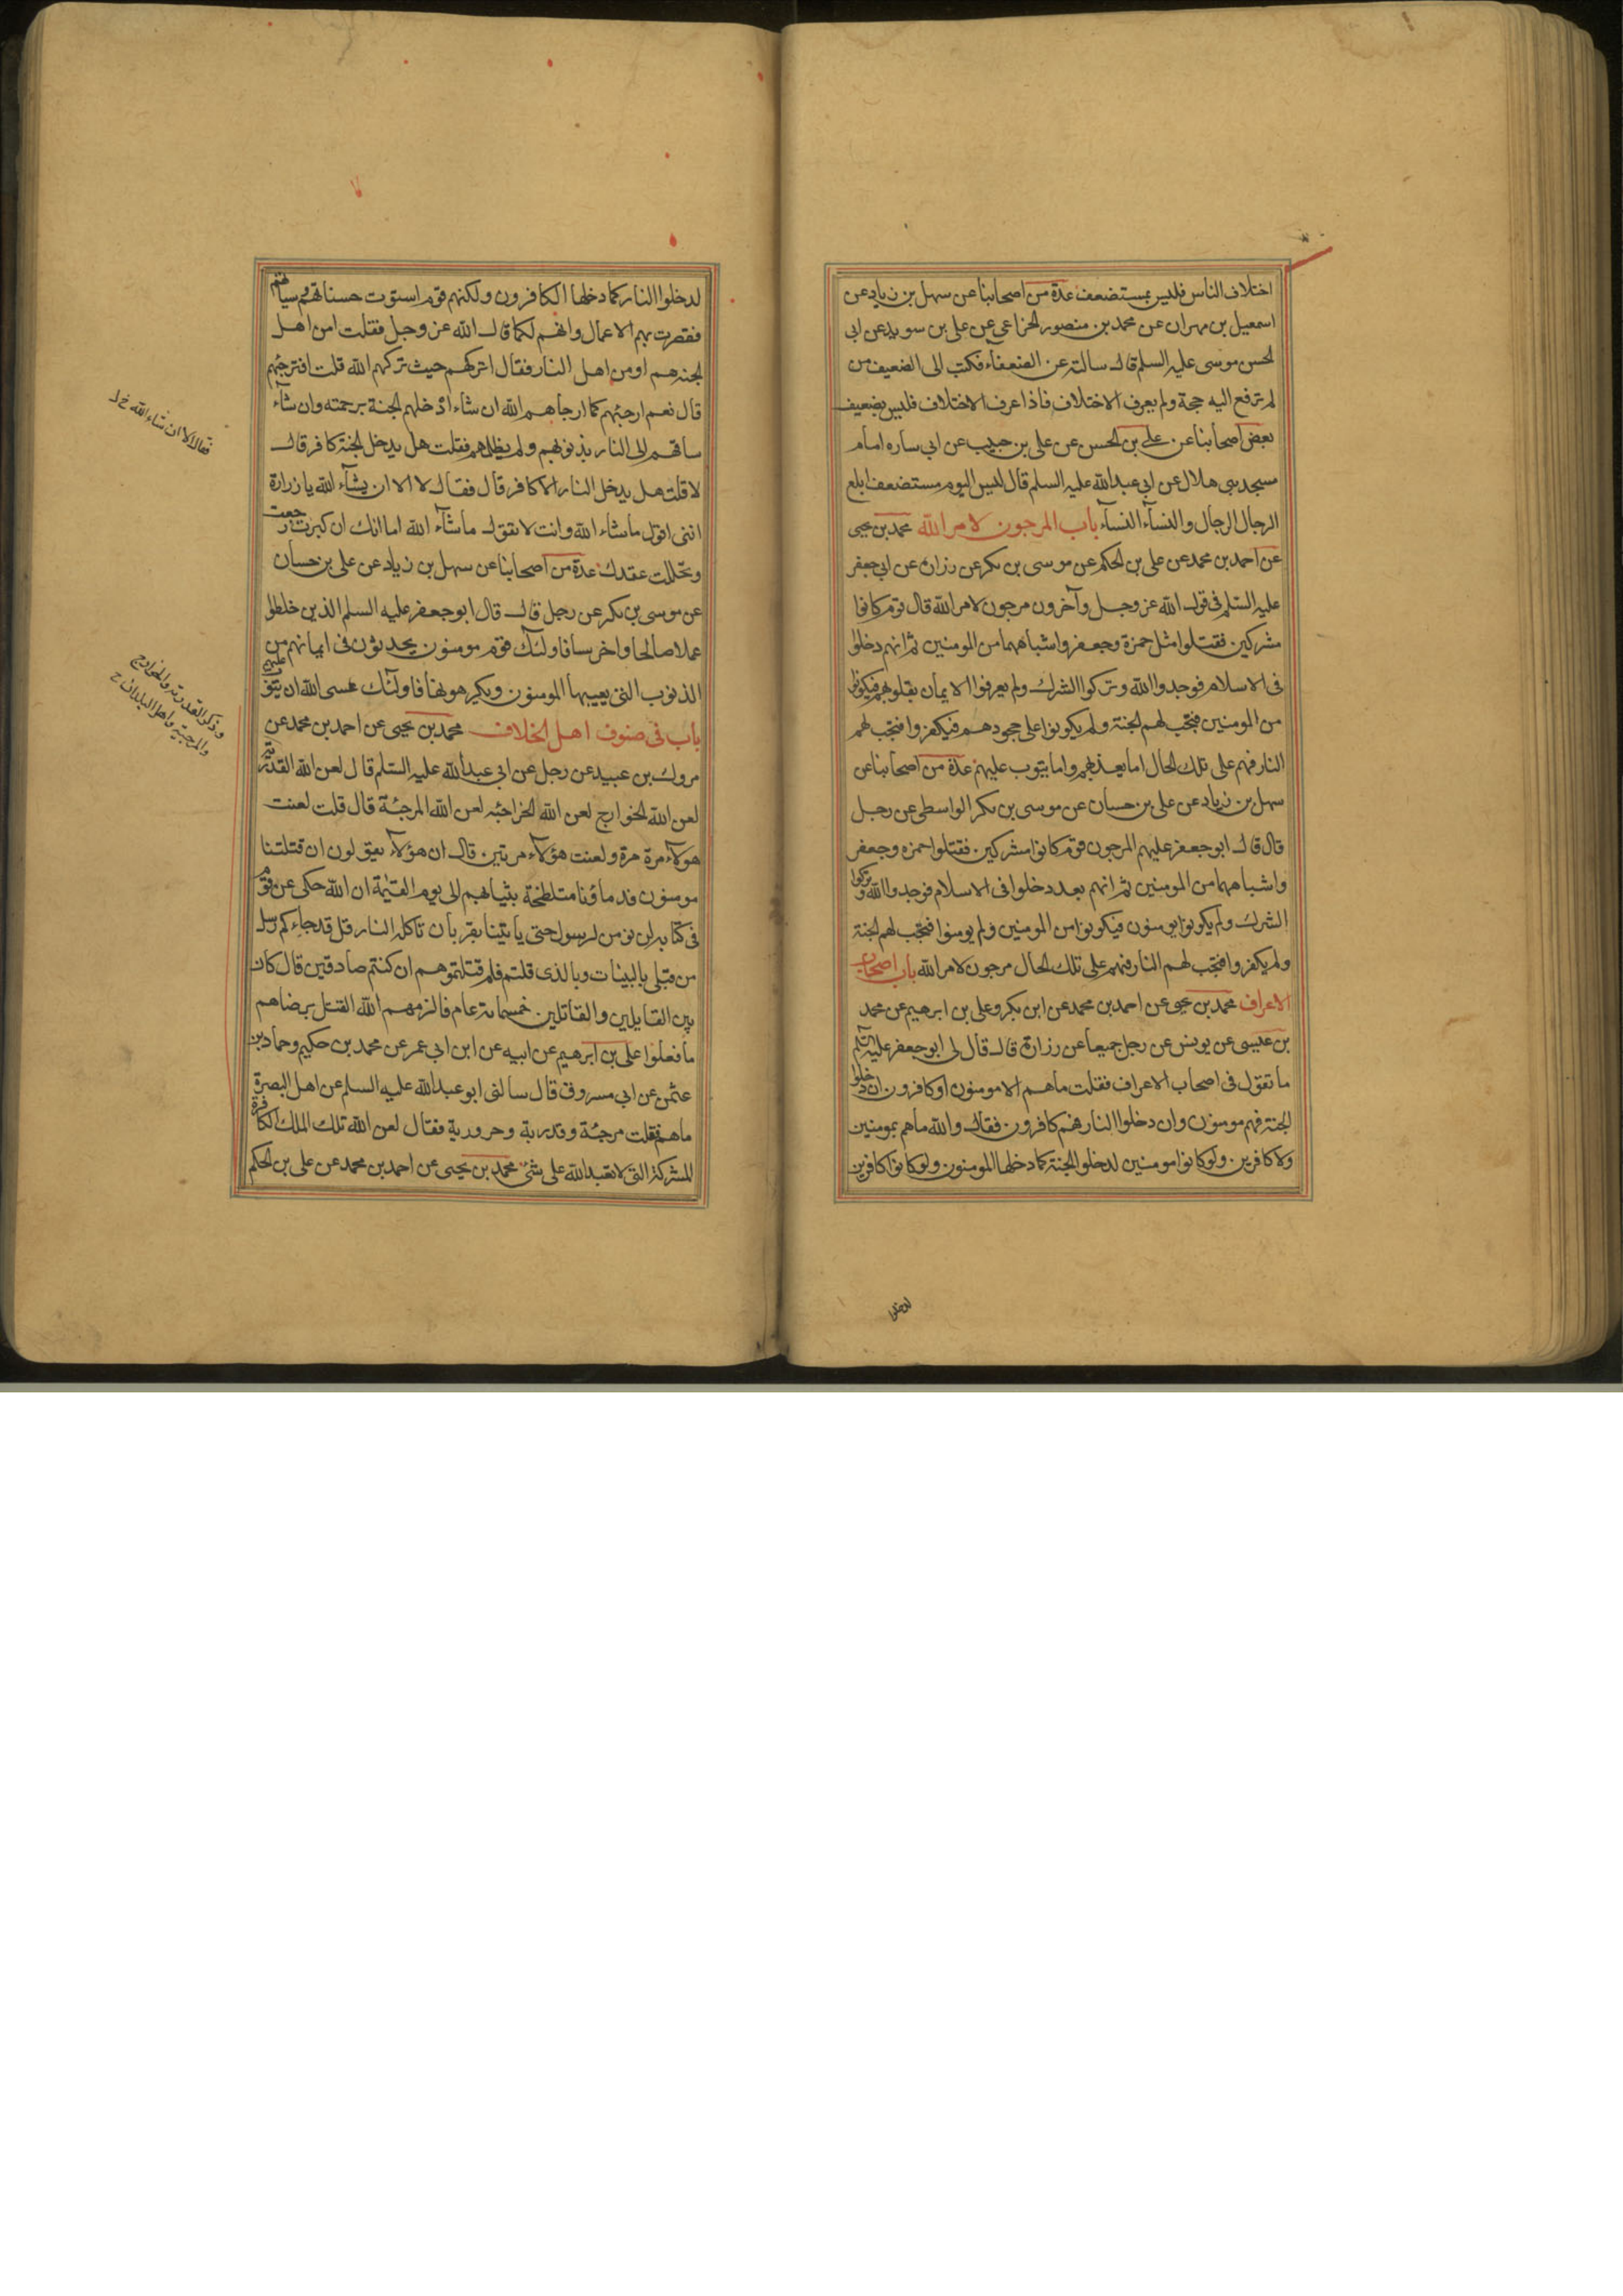 اختلاف الناس فليس بمستضعف عدة من اصحابنا عن سهل بن زياد عن
اسمعيل بن مهران عن محمد بن منصور الخزاعى عن على بن سويد عن ابى
لحسن موسى عليه السلم قال سالته عن الضعفآء فكتب الى الضعيف من
لم ترفع اليه حجة ولم يعرف الاختلاف فاذا عرف الاختلاف فليس بضعيف
بعض اصحابنا عن على بن الحسن عن على بن حبيب عن ابي ساره امام
مسجد بنى هلال عن ابى عبدالله عليه السلم قال ليس اليوم مستضعف ابلغ
الرجال الرجال والنسآء النسآء باب المرجون لامر الله محمد بن يحيى
عن احمد بن محمد عن على بن الحكم عن موسى بن بكر عن زرارة عن ابى جعفر
عليه السلم فى قول الله عز وجل وآخرون مرجون لامر الله قال قوم كانوا
مشركين فقتلوا مثل حمزة وجعفر واشباههما من المومنين ثم انهم دخلوا
فى الاسلام فوحدوا الله وتركوا الشرك ولم يعرفوا الايمان بقلوبهم فيكونوا
من المومنين فتجب لهم الجنة ولم يكونوا على جحودهم فيكفروا فتجب لهم
النار فهم على تلك الحال اما يعذبهم واما يتوب عليهم عدة من اصحابنا عن
سهل بن زياد عن على بن حسان عن موسى بن بكر الواسطى عن رجل
قال قال ابو جعفر عليهم المرجون قوم كانوا مشركين فقتلوا حمزه وجعفر
واشباههما من المومنين ثم انهم بعد دخلوا فى الاسلام فوحدوا الله وتركوا
الشرك ولم يكونوا يومنون فيكونوا من المومنين ولم يومنوا فتجب لهم الجنة
ولم يكفروا فتجب لهم النار فهم على تلك الحال مرجون لامر الله باب اصحاب
الاعراف محمد بن يحيى عن احمد بن محمد عن ابن بكر وعلى بن ابرهيم عن محمد
بن عيسى عن يونس عن رجل جميعا عن زرارة قال قال لى ابو جعفر عليه السلم
ما تقول فى اصحاب الاعراف فقلت ما هم الا مومنون او كافرون ان دخلوا
الجنة فهم مومنون وان دخلوا النار فهم كافرون فقال والله ما هم بمومنين
ولا كافرين ولو كانوا مومنين لدخلوا الجنة كما دخلها المومنون ولو كانوا كافرين
لدخلوا
لدخلوا النار كما دخلها الكافرون ولكنهم قوم استوت حسناتهم وسياتهم
فقصرت بهم الاعمال وانهم لكما قال الله عز وجل فقلت امن اهل
لجنه هم او من اهل النار فقال اتركهم حيث تركهم الله قلت افترجئهم
قال نعم ارجئهم كما ارجاهم الله ان شاء ادخلهم الجنة برحمته وان شآء
ساقهم الى النار بذنوبهم ولم يظلمهم فقلت هل يدخل الجنة كافر قال
لا قلت هل يدخل النار الا كافر قال فقال لا الا ان يشآء الله يا زرارة
اننى اقول ما شاء الله وانت لا تقول ما شآء الله اما انك ان كبرت رجعت
وتحللت عقدك عدة من اصحابنا عن سهل بن زياد عن على بن حسان
عن موسى بن بكر عن رجل قال قال ابو جعفر عليه السلم الذين خلطوا
عملا صالحا واخر سيا فاولئك قوم مومنون يحدثون فى ايمانهم من
الذنوب التى يعيبها المومنون ويكرهونها فاولئك عسى الله ان يتوب عليهم
باب فى صنوف اهل الخلاف محمد بن يحيى عن احمد بن محمد عن
مروك بن عبيد عن رجل عن ابي عبدالله عليه السلم قال لعن الله القدرية
لعن الله الخوارج لعن الله الخراجئه لعن الله المرجئة قال قلت لعنت
هولآء مرة مرة ولعنت هؤلآء مرتين قال ان هؤلآء يقولون ان قتلتنا
مومنون فدماؤنا متلطخة بثيابهم الى يوم القيٰمة ان الله حكى عن قوم
فى كتابه لن نومن لرسول حتى ياتينا بقربان تاكله النار قل قد جاءكم رسل
من قبلى بالبينات وبالذى قلتم فلم قتلتموهم ان كنتم صادقين قال كان
بين القايلين والقاتلين خمسمائة عام فالزمهم الله القتل برضاهم
ما فعلوا على بن ابرهيم عن ابيه عن ابن ابي عمر عن محمد بن حكيم وحماد بن
عثمن عن ابي مسروق قال سالنى ابو عبدالله عليه السلم عن اهل البصرة
ما هم فقلت مرجئة وقدرية وحرورية فقال لعن الله تلك الملل الكافرة
المشركة التى لا تعبد الله على شئ محمد بن يحيى عن احمد بن محمد عن على بن الحكم
فقال لا الا ان شاء الله خ ل
وذكر القدرية والخوارج
والمرجئة واهل البلدان خ